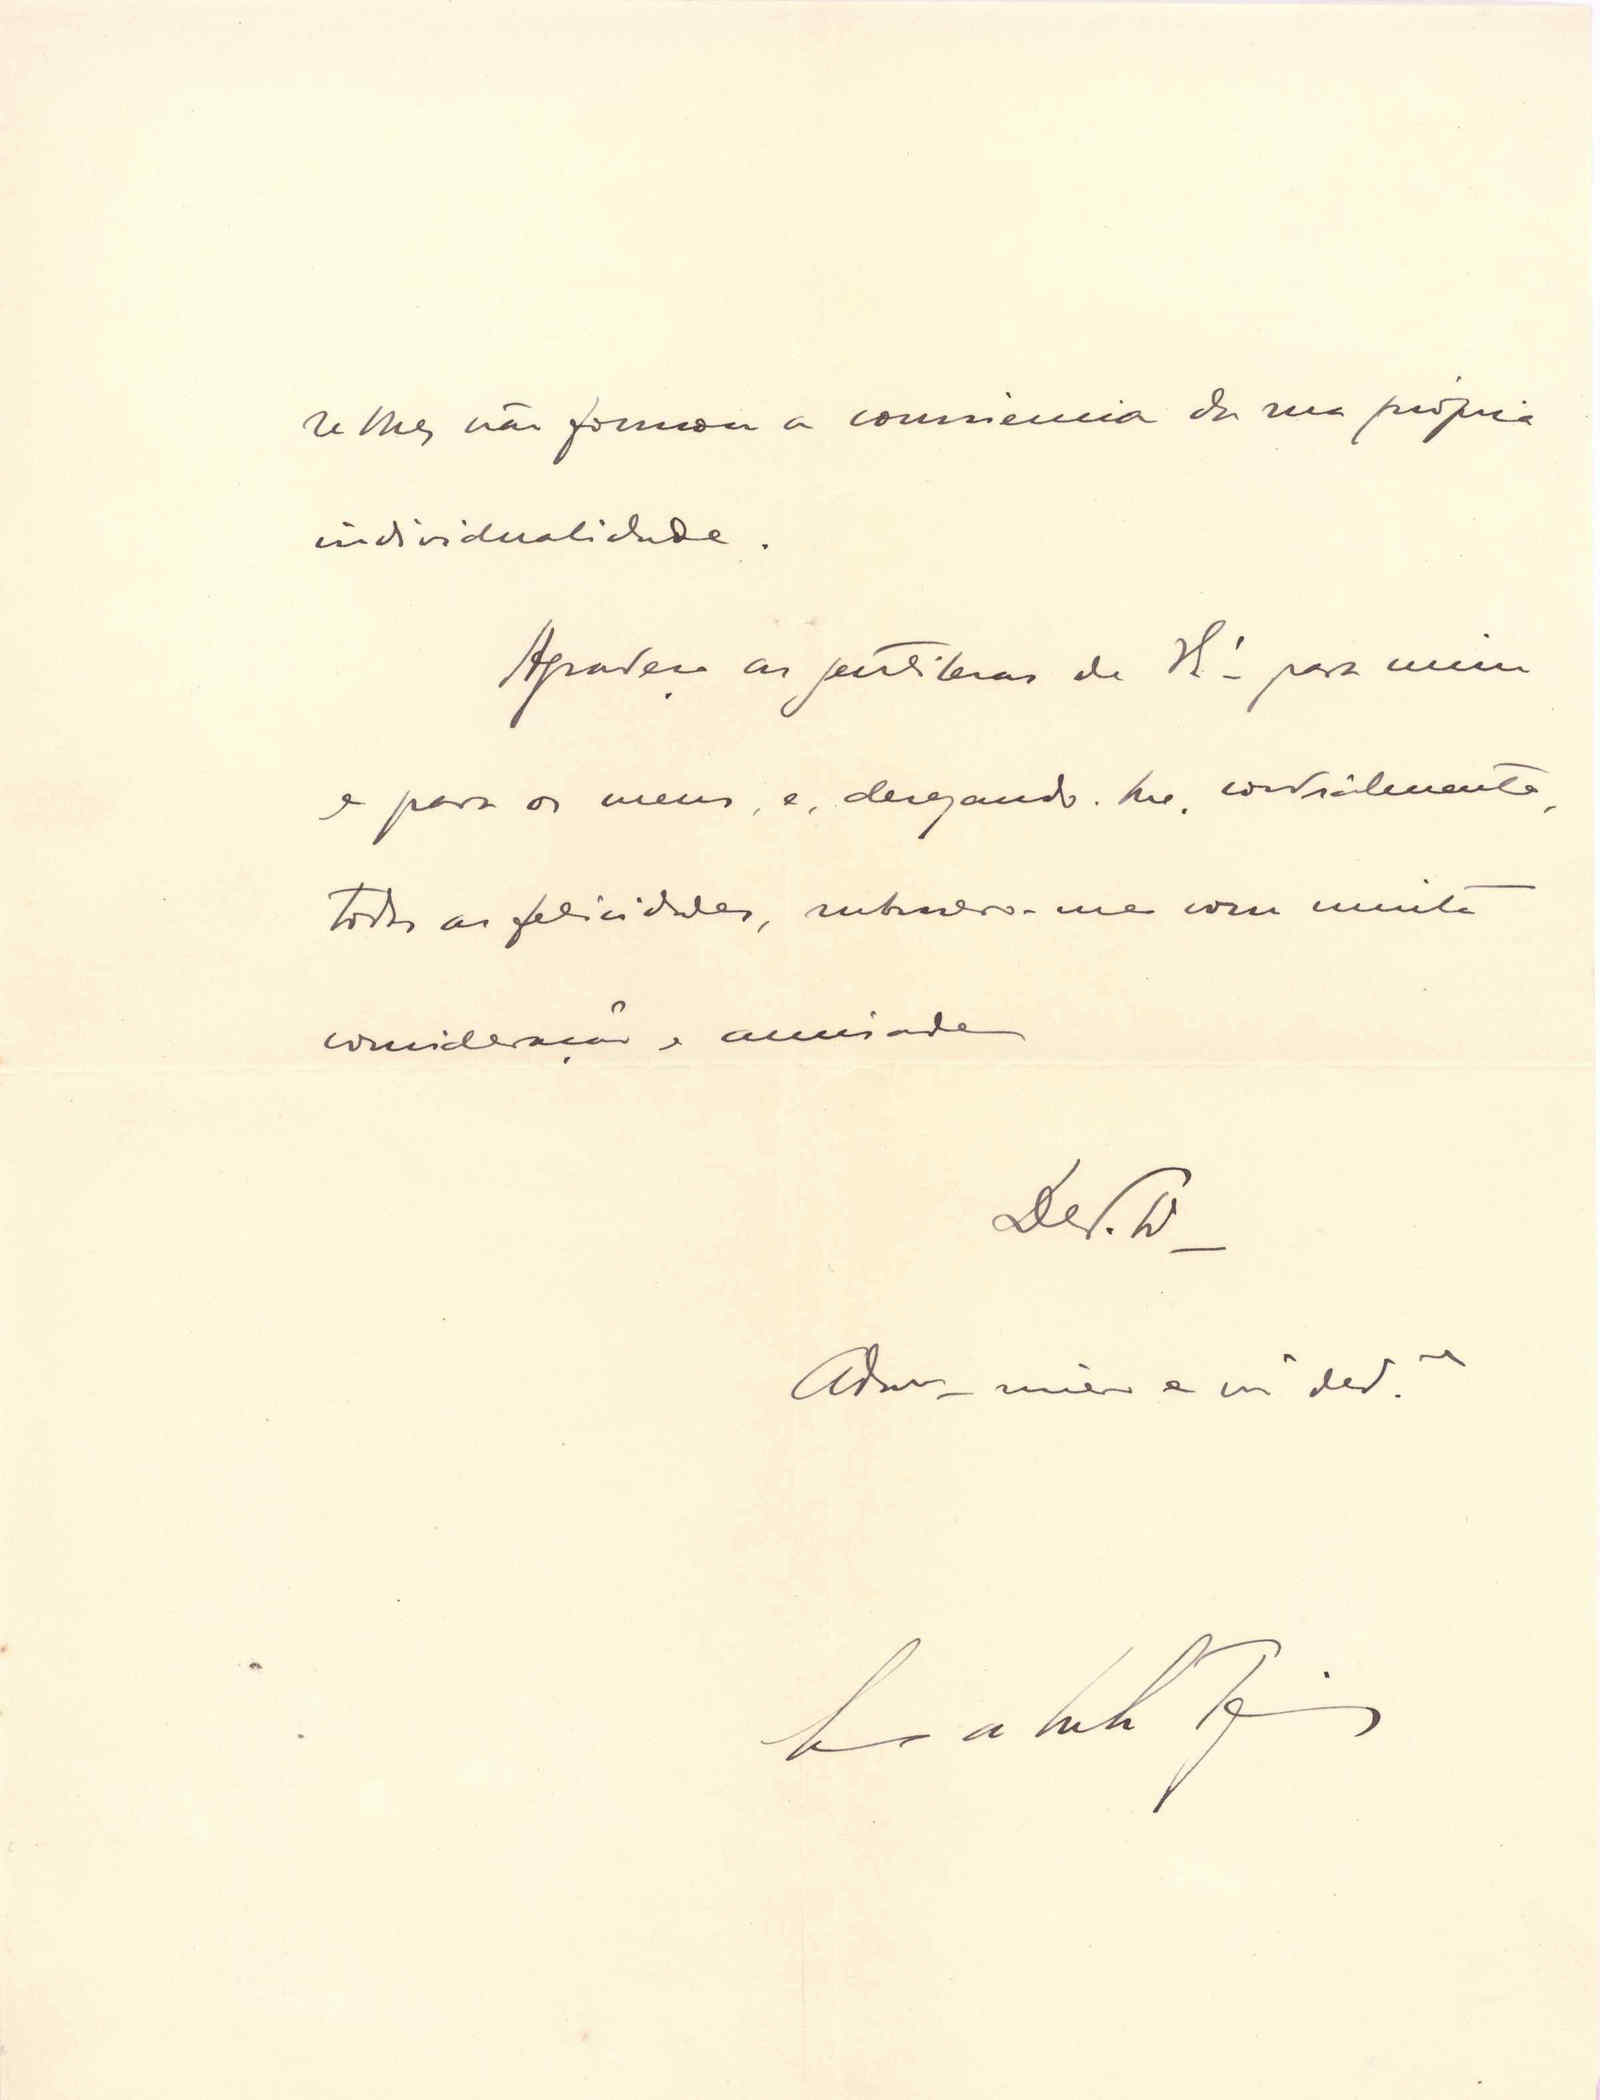 se lhes não formou a consciencia da sua própria
individualidade.
Agradeço as gentilezas de V. para mim
e para os meus, e, desejando-lhe, cordialmente,
todas as felicidades, subscrevo-me com muita
consideração e amizade
De V.
Adm. e